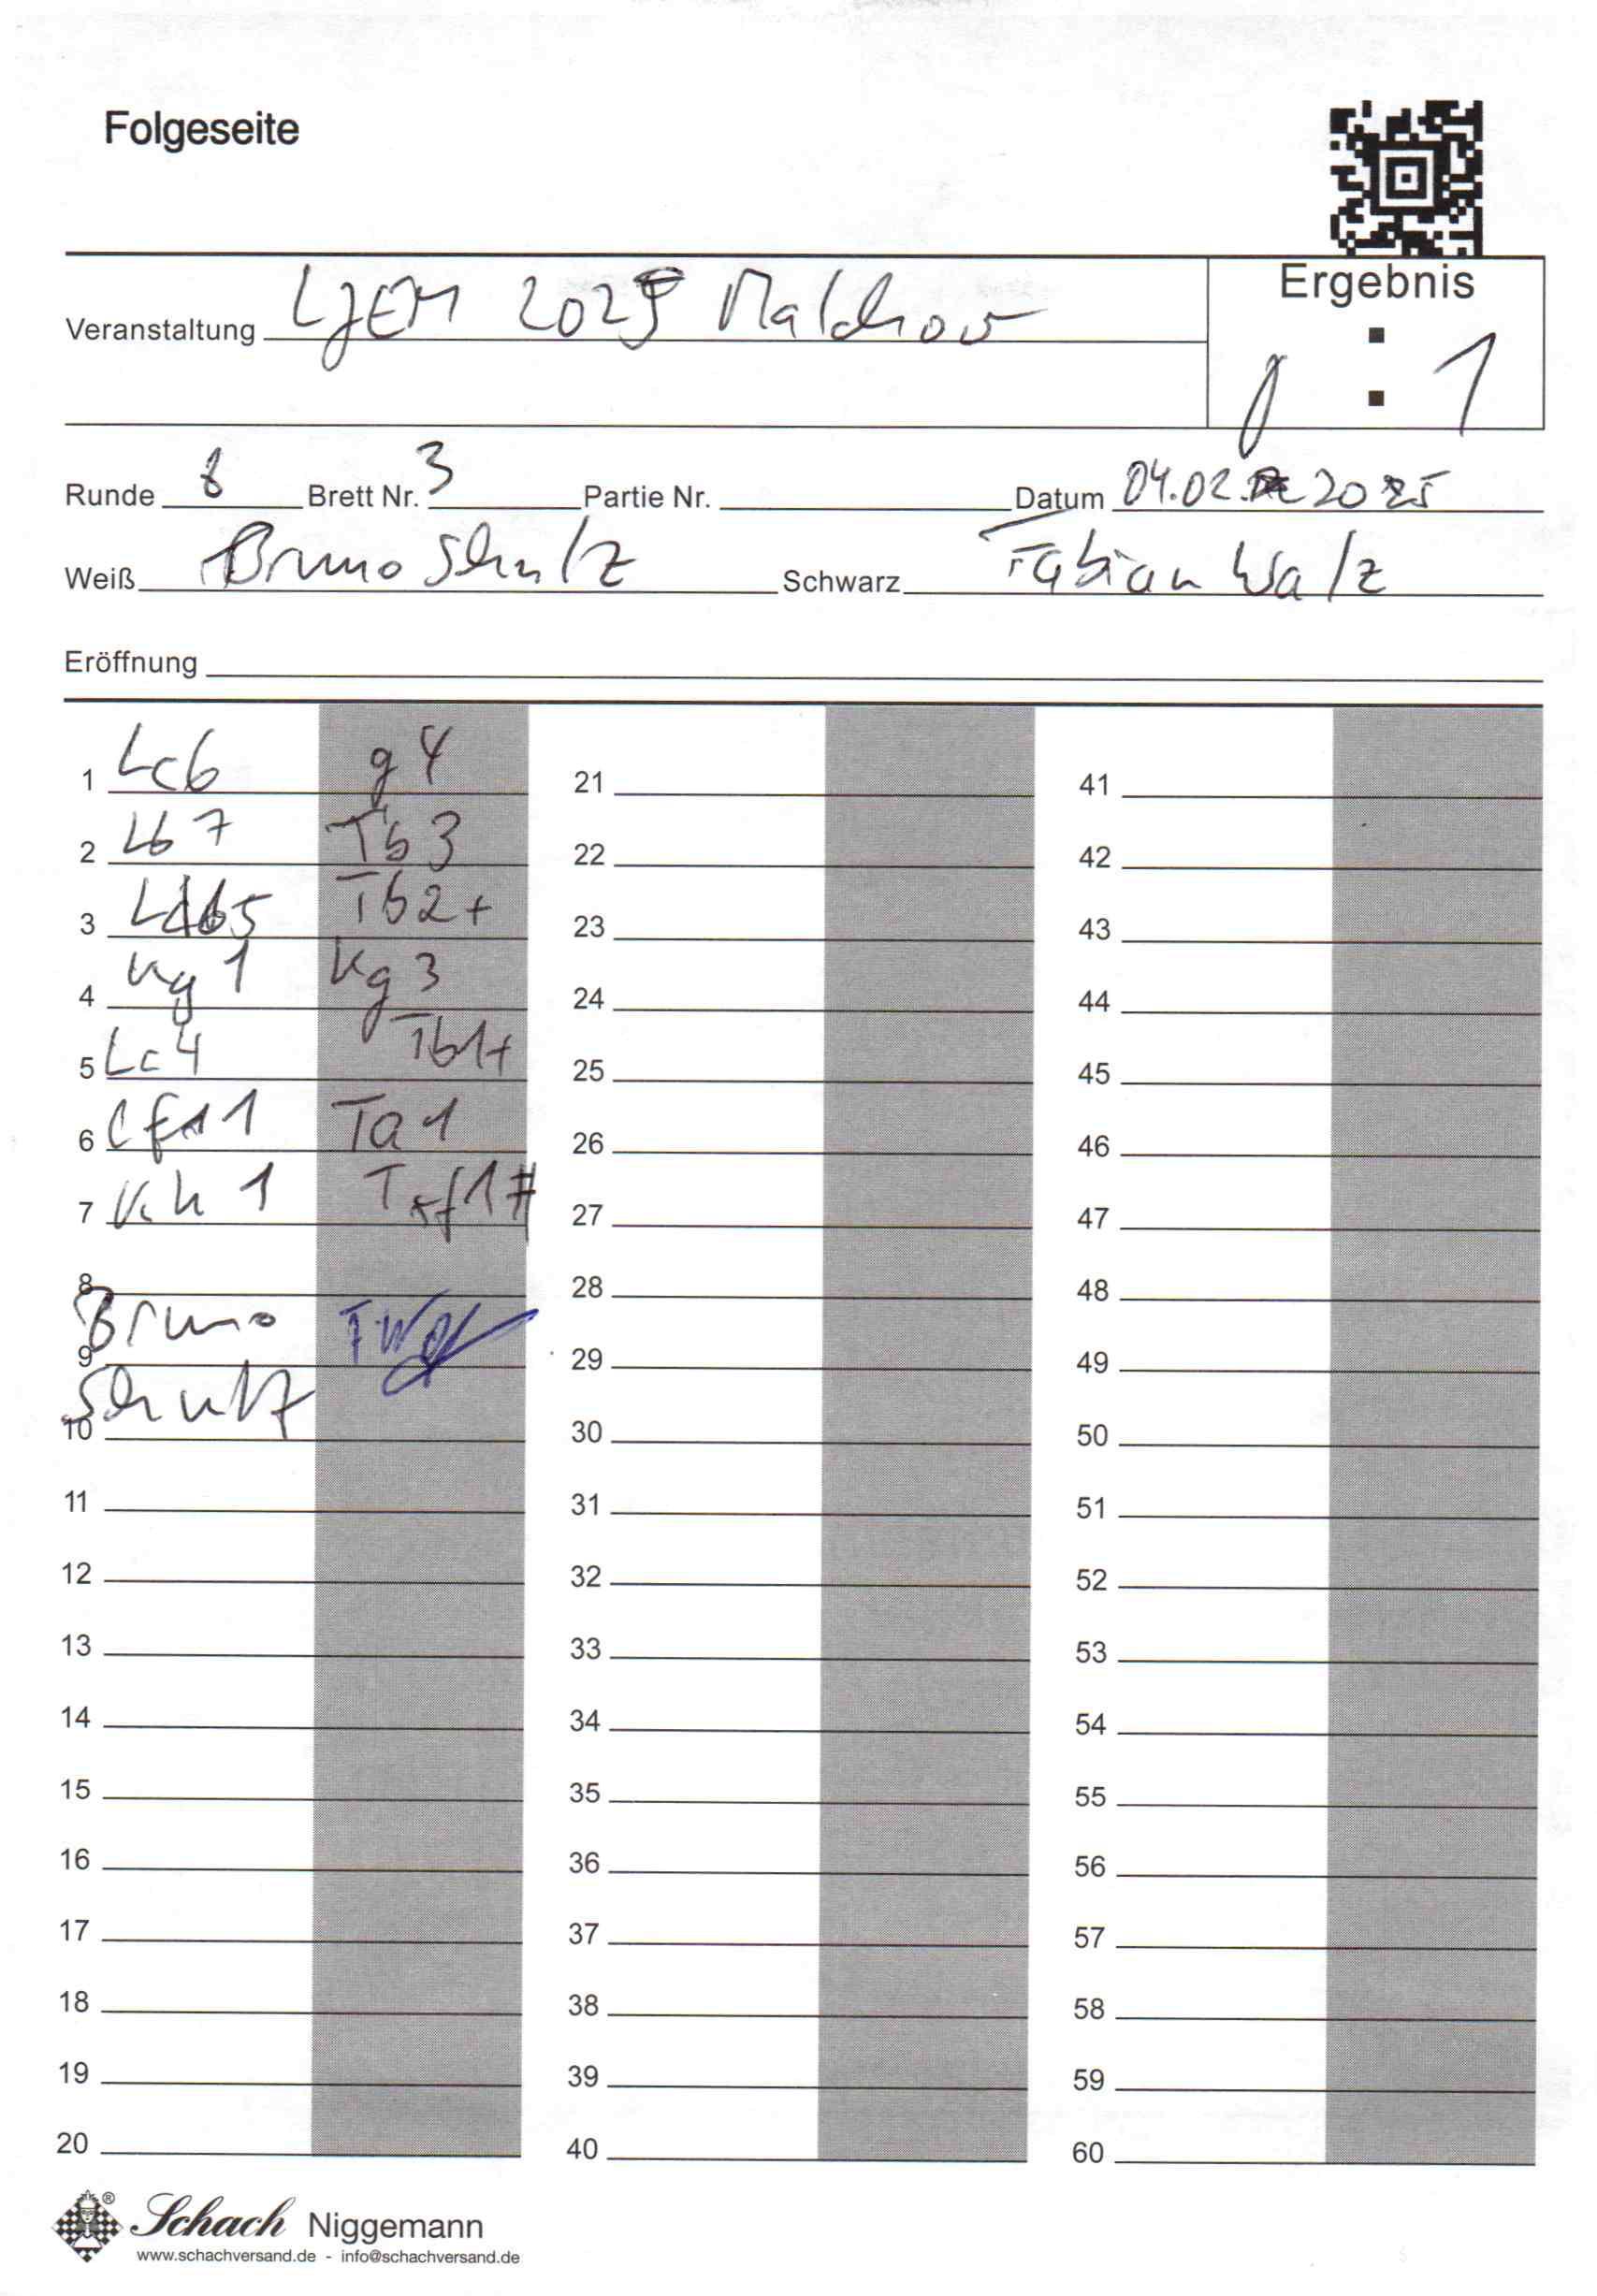 Folgeseite
Veranstaltung LJEM 2025 Malchow
Ergebnis
0 : 1
Runde 8 Brett Nr. 3 Partie Nr. Datum 04.02. 2025
Weiß Bruno Schulz Schwarz Fabian Walz
Eröffnung
1 Lc6 g4 21 41
2 Lb7 Tb3 22 42
3 Lb5 Tb2+ 23 43
4 Kg1 Kg3 24 44
5 Lc4 Tb1+ 25 45
6 Lf1 Ta1 26 46
7 Kh1 Txf1# 27 47
8 28 48
Bruno
9 29 49
Schulz
10 30 50
11 31 51
12 32 52
13 33 53
14 34 54
15 35 55
16 36 56
17 37 57
18 38 58
19 39 59
20 40 60
® Schach Niggemann
www.schachversand.de - info@schachversand.de